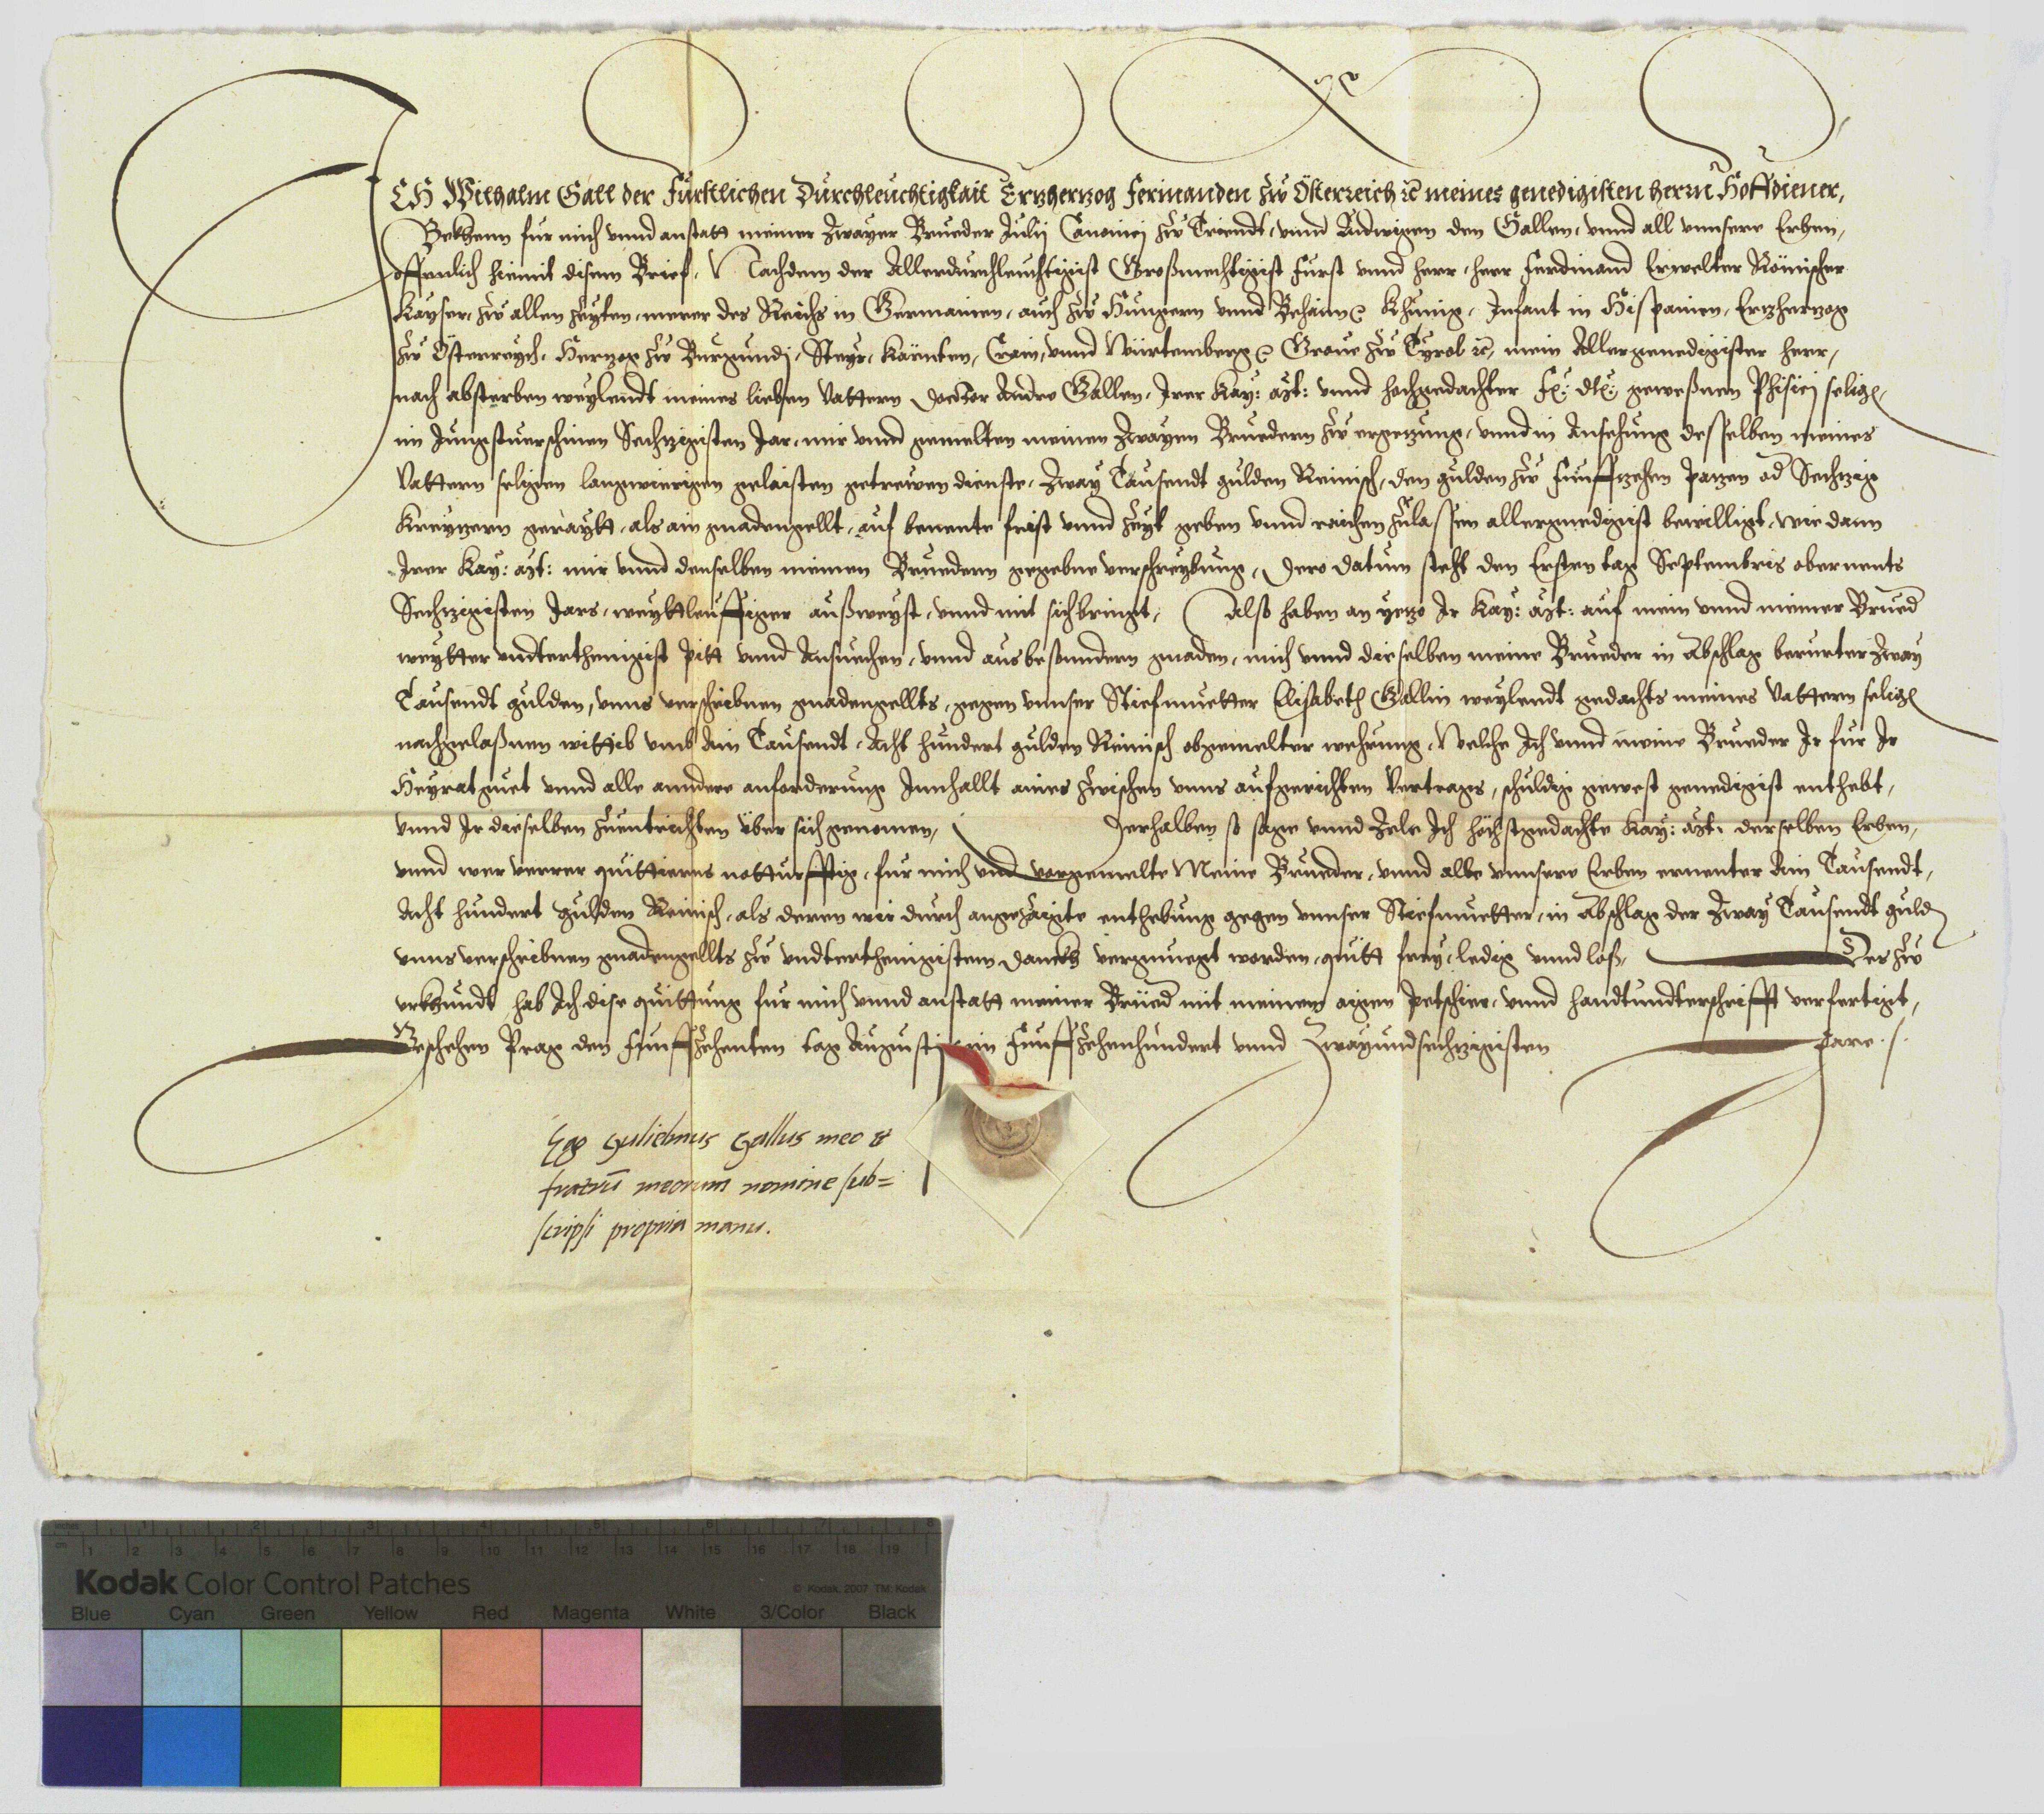 ICH Wilhalm Gall der Fürstlichen Durchleuchtigkait Ertzhertzog Ferinanden zw Österreich ꝛc meines genedigisten herrn Hoffdiener,
Bekhenn fur mich vnnd anstatt meiner Zwayer Brueder Julij Canonicj zw Triendt, vnnd Ludwigen den Gallen, vnnd all vnnsere Erben,
offennlich hiemit disem Brief, Nachdem der Allerdurchleuchtigist Großmechtigist Furst vnnd herr, herr Ferdinand Erwelter Römischer
Kayser, zw allen Zeyten, merer des Reichs in Germanien, auch zw Hungern vnnd Behaim ꝛ Khünig, Infant in Hispanien, Ertzhertzog
zw Österreych, Hertzog zw Burgundj, Steyr, Kärnten, Crain, vnnd Würtemberg ꝛ Graue zw Tyrol ꝛc, mein Allergenedigister herr,
nach absterben weylendt meines lieben Vattern Doctor Andre Gallen, Irer Kay: Mt: vnnd hochgedachter Fr: Dt: geweßnen Phisicj selige,
im Jungstuerschinen Sechtzigisten Jar, mir vnnd gemelten meinen Zwayen Bruedern zw ergetzung, vnnd in Ansehung desselben meines
Vattern seligen langwierigen gelaisten getrewen dienste, Zway Tausendt gulden Reinisch, den gulden zw Funfftzehen patzen od Sechtzig
Kreytzern gerayt, als ain gnadengellt, auf benente frist vnnd Zeyt geben vnnd raichen zulassen allergnedigist bewilligt, wie dann
Irer Kay: Mt: mir vnnd denselben meinen Bruedern gegebne verschreybung, Dero datum steht den Ersten tag Septembris obernents
Sechtzigisten Jars, weyttleuffiger außweyst, vnnd mit sich bringt, Also haben an yetzo Ir Kay: Mt: auf mein vnnd meiner Brued
weytter vndterthenigist pitt vnnd Ansuechen, vnnd aus besonndern gnaden, mich vnnd dieselben meine Brueder in Abschlag berurter Zway
Tausendt gulden, vnns verschribnen gnadengellts, gegen vnnser Stiefmuetter Elisabeth Gallin weylendt gedachts meines Vattern selige
nachgelaßnen wittib vmb Ain Tausendt, Acht hundert gulden Reinisch obgemelter wehrung, Welche Ich vnnd meine Brueder Ir fur Ir
Heyrat guet vnnd alle anndere anforderung Innhallt aines zwischen vnns aufgerichten Vertrags, schuldig gewest genedigist enthebt,
vnnd Ir dieselben zuentrichten über sich genomen, Derhalben so sage vnnd Zele Ich höchstgedachte Kay: Mt: derselben Erben,
vnnd wer verrer quittierns notturfftig, fur mich vnd vorgemelte Meine Brueder, vnnd alle vnnsere Erben ernenter Ain Tausendt,
Acht hundert Gulden Reinisch, als deren wir durch angezaigte enthebung gegen vnnser Stiefmuetter, in Abschlag der Zway Tausendt guld
vnns verschribnen gnadengellts zw vndterthenigistem danckh vergnuegt worden, quitt frey, ledig vnnd loß, Des zw
vrkhundt hab Ich dise quittung fur mich vnnd anstatt meiner Brüed mit meinem aigen petschier, vnnd handtundterschrifft verfertigt,
Geschehen Prag den Funffzehenten tag Augustj im Funffzehenhundert vnnd Zwayundsechtzigisten Jare ./.
Ego Gulielmus Gallus meo &
fratrū meorum nomine sub=
scripsi propria manu.
Kodak Color Control Patches
© Kodak, 2007 TM: Kodak
Blue Cyan Green Yellow Red Magenta White 3/Color Black